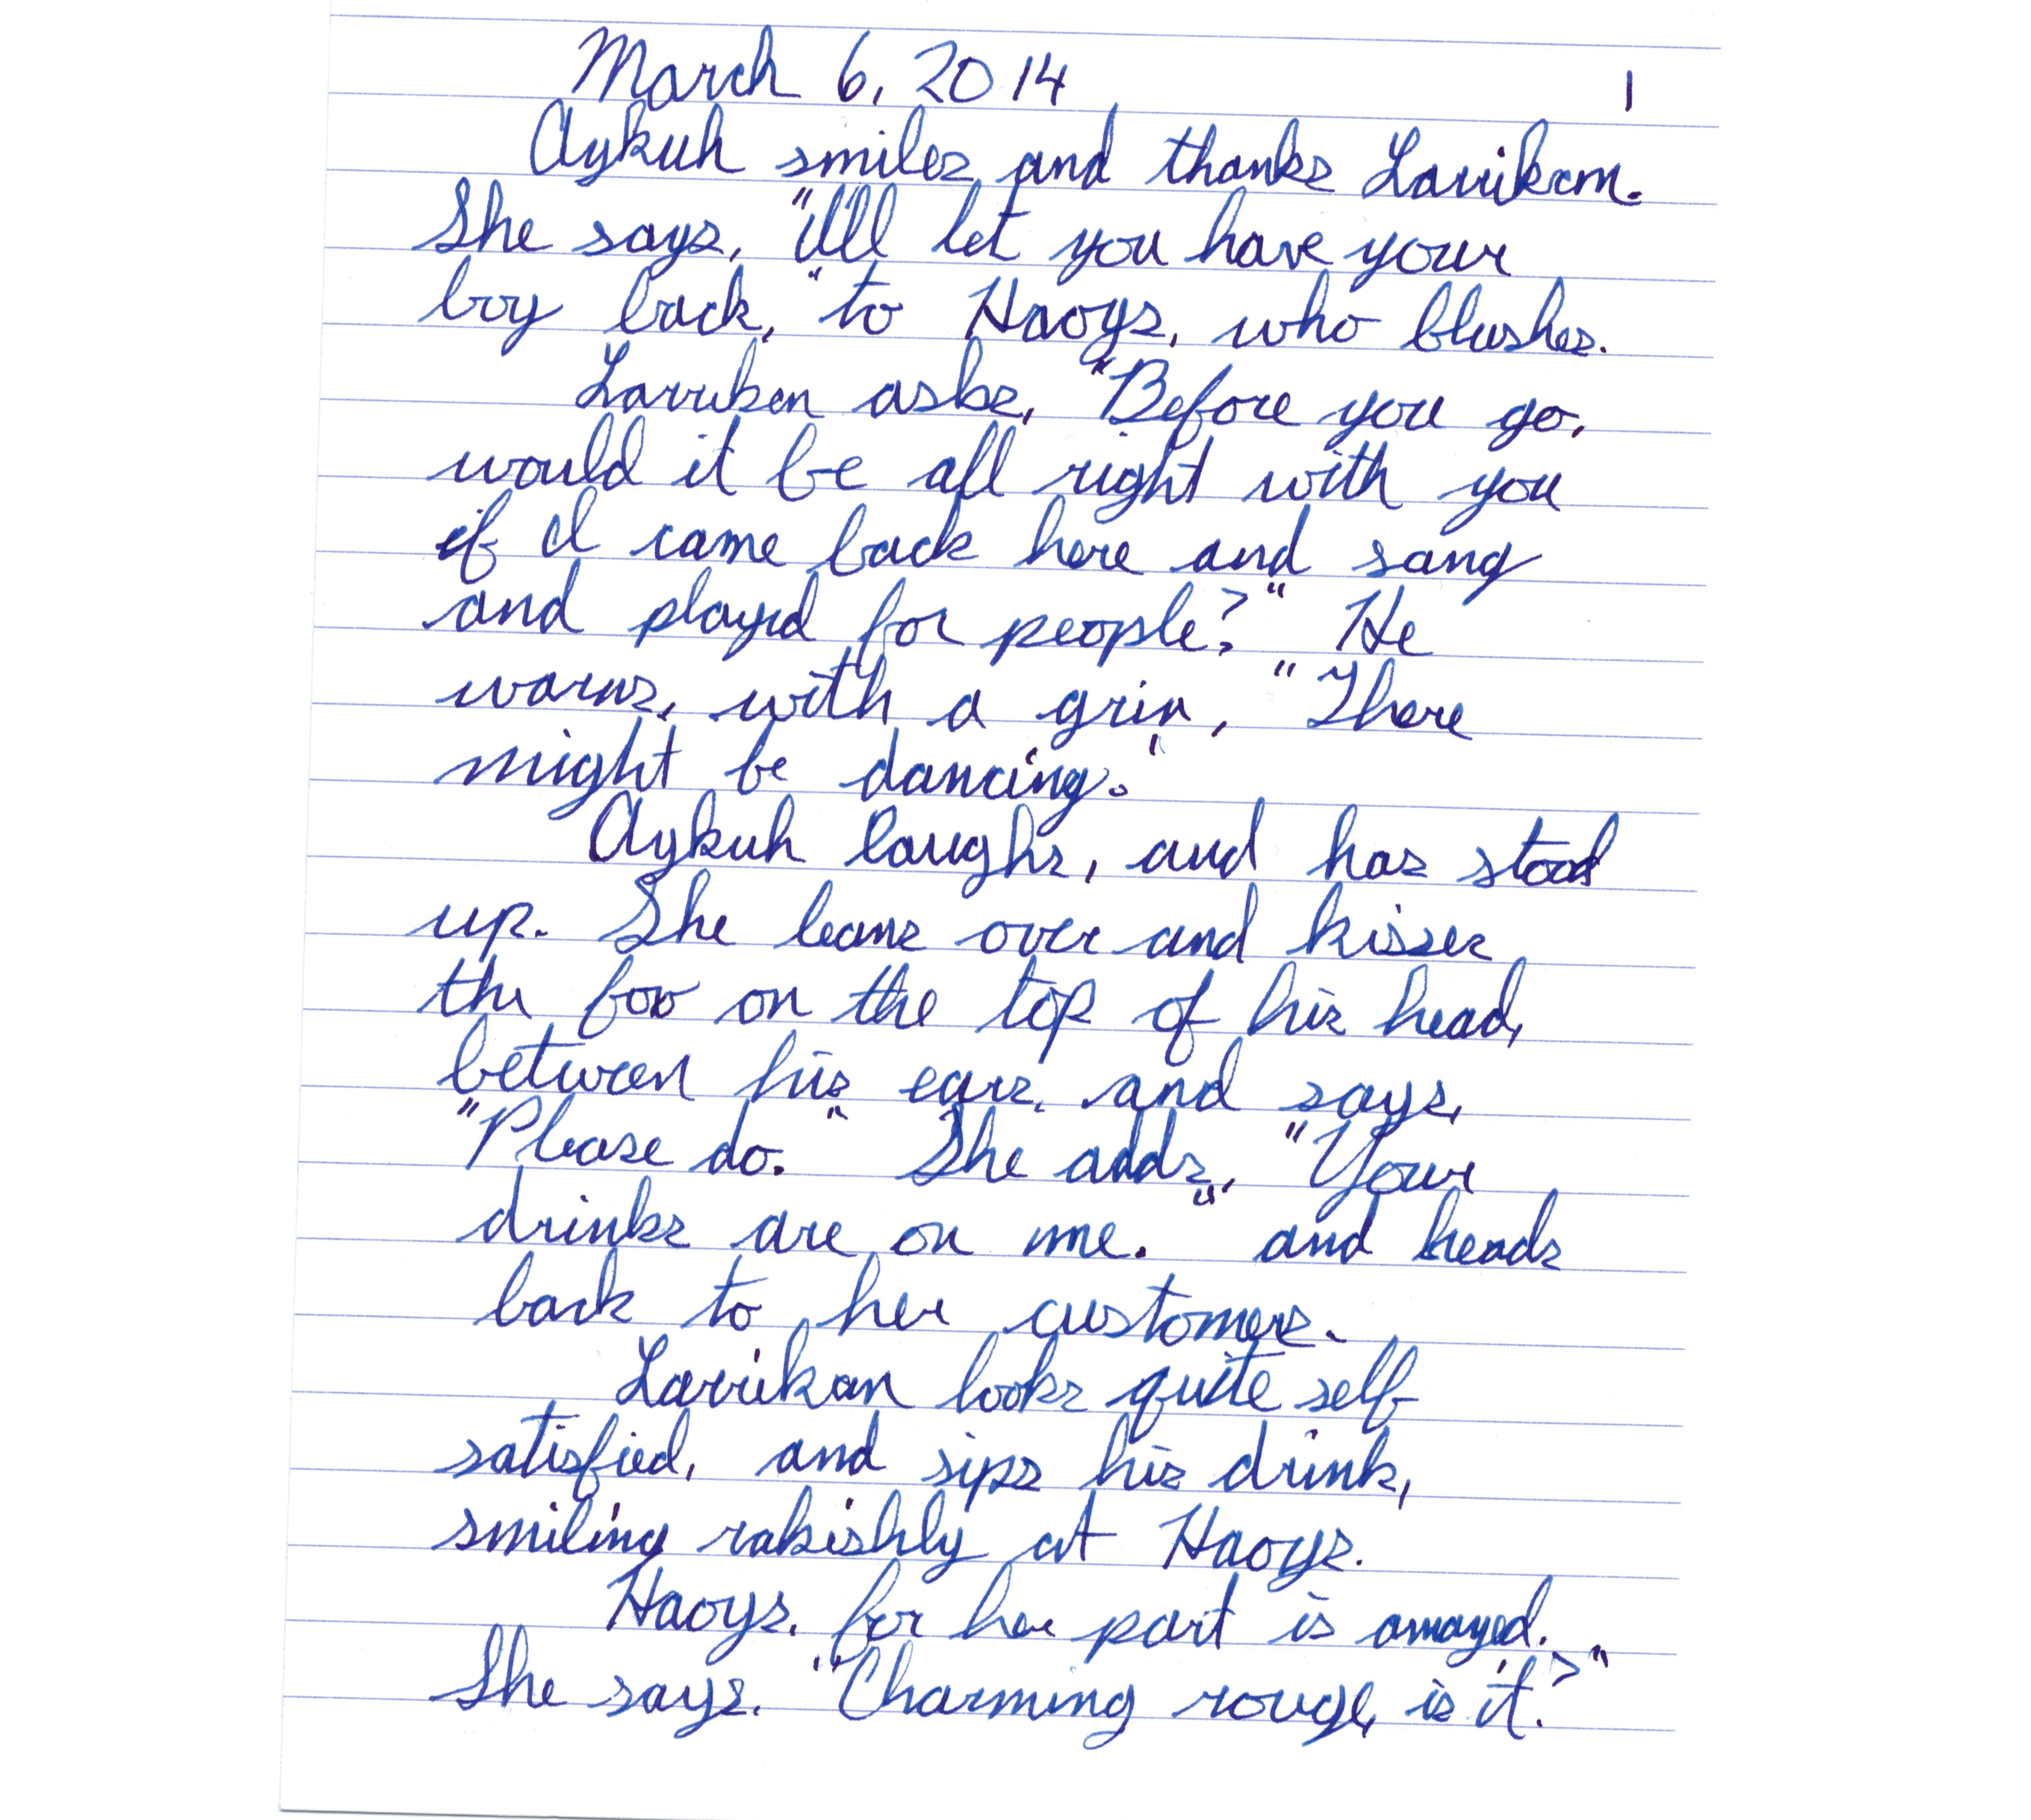 March 6, 2014 1
Aykuh smiles and thanks Larrikem.
She says, "I'll let you have your
boy back," to Haoys, who blushes.
Larriken asks, "Before you go,
would it be all right with you
if I came back here and sang
and played for people?" He
warns, with a grin, "There
might be dancing."
Aykuh laughs, and has stood
up. She leans over and kisses
the fox on the top of his head,
between his ears, and says,
"Please do." She adds, "Your
drinks are on me." and heads
back to her customers.
Larrikan looks quite self
satisfied, and sips his drink,
smiling rakishly at Haoys.
Haoys, for her part is amayed.
She says, "Charming rouge, is it?"